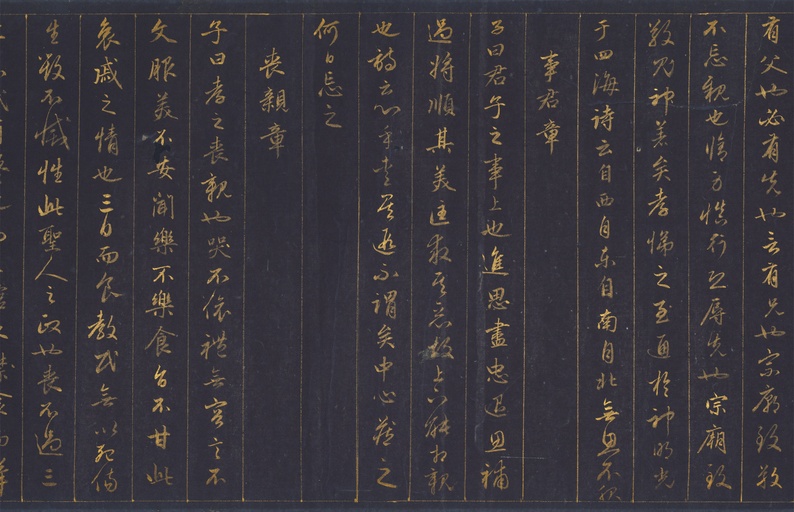 有父也必有先也言有兄也宗廟致敬
不忘親也脩身慎行恐辱先也宗廟致
敬鬼神著矣孝悌之至通於神明光
于四海詩云自西自東自南自北無思不服
事君章
子曰君子之事上也進思盡忠退思補
過將順其美匡救其惡故上下能相親
也詩云心乎愛矣遐不謂矣中心藏之
何日忘之
喪親章
子曰孝之喪親也哭不偯禮無容言不
文服美不安聞樂不樂食旨不甘此
哀戚之情也三日而食教民無以死傷
生毀不滅性此聖人之政也喪不過三